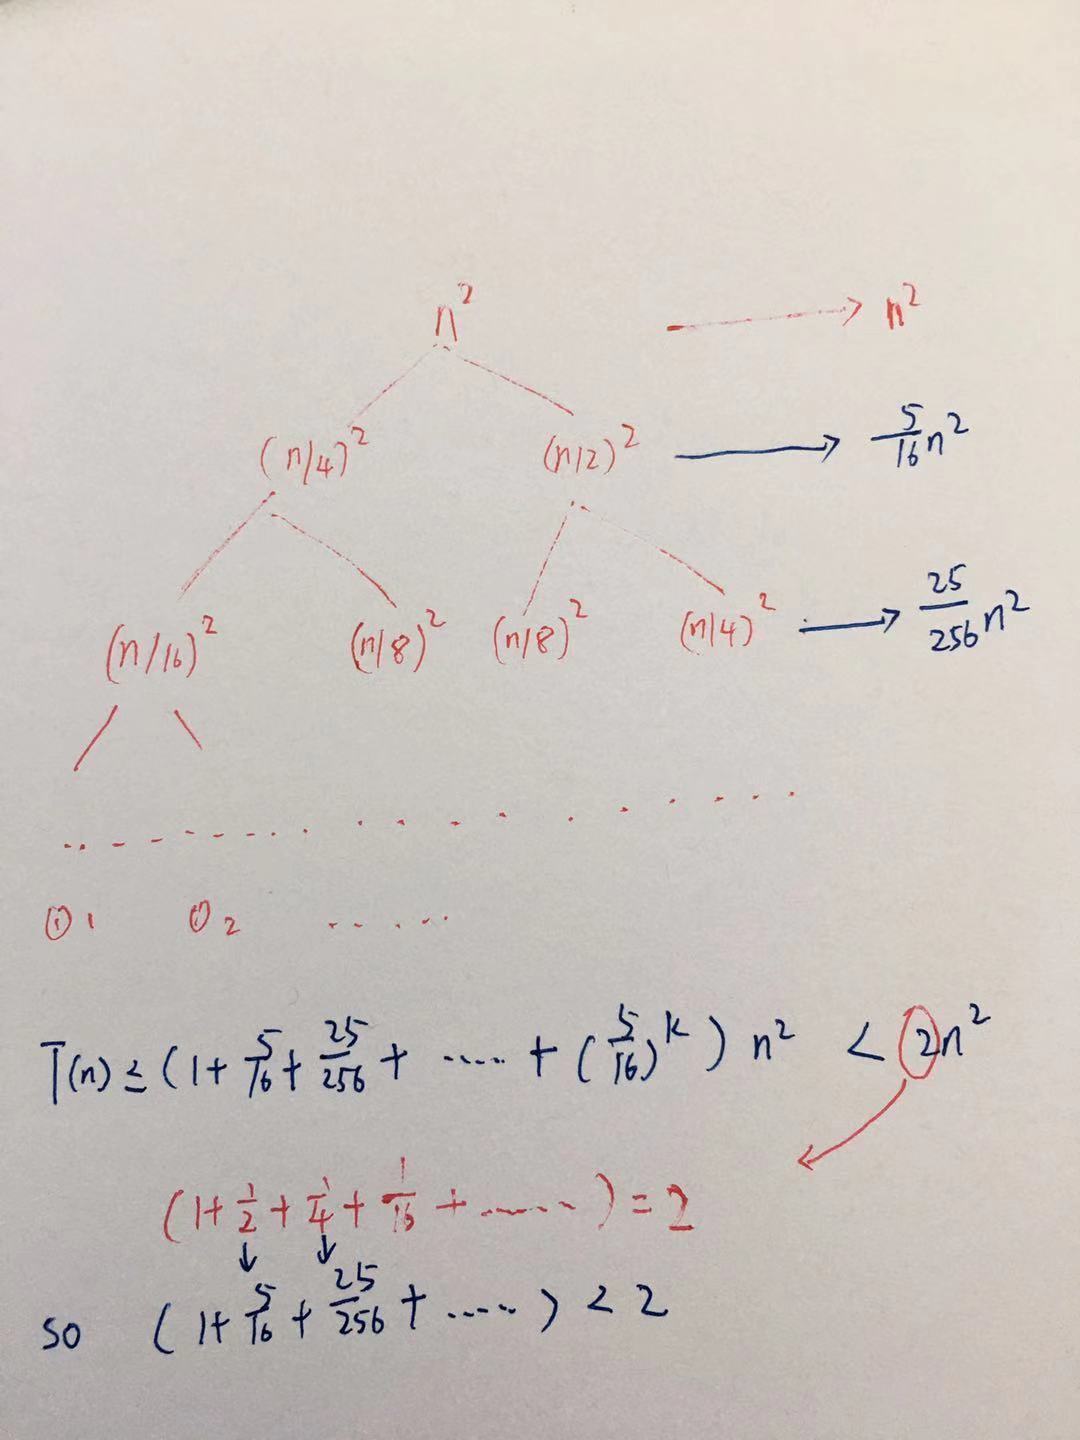 n² → n²
(n/4)² (n/2)² → 5/16 n²
(n/16)² (n/8)² (n/8)² (n/4)² → 25/256 n²
.. - - - - - - . . . . . . . . . .
① 1 ① 2 ......
T(n) ≤ (1 + 5/16 + 25/256 + ..... + (5/16)^k) n² < 2n²
(1 + 1/2 + 1/4 + 1/16 + ......) = 2
↓ ↓
so (1 + 5/16 + 25/256 + .....) < 2